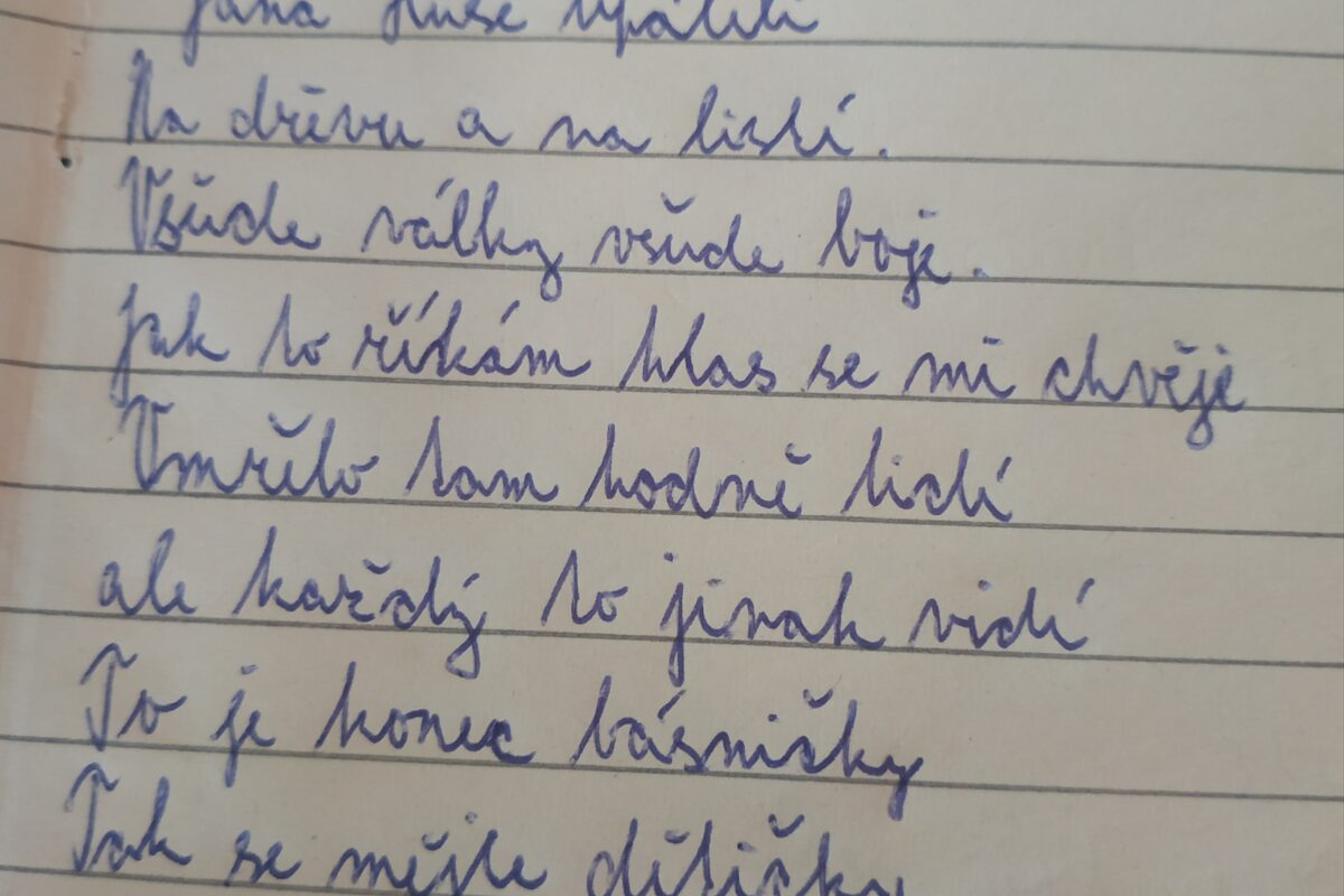 Jana Huse upálili
Na dřevu a na listí.
Všude války všude boje.
Jak to říkám hlas se mi chvěje
Umřelo tam hodně lidí
ale každý to jinak vidí
To je konec básničky
Tak se mějte dětičky